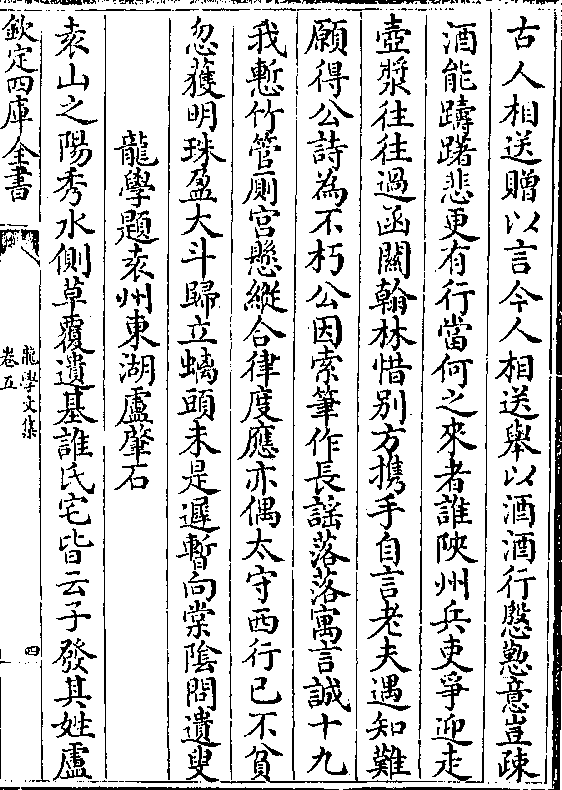 古人相送贈以言今人相送舉以酒酒行慇懃意豈疎
酒能躊躇悲更有行當何之來者誰陜州兵吏爭迎走
壺漿往往過函關翰林惜别方携手自言老夫遇知難
願得公詩為不朽公因索筆作長謡落落寓言誠十九
我慙竹管厠宮懸縱合律度應亦偶太守西行已不貧
忽獲明珠盈大斗歸立螭頭未是遲暫向棠陰問遺叟
龍學題袁州東湖盧肇石
袁山之陽秀水側草覆遺基誰氏宅皆云子發其姓盧
欽定四庫全書
龍學文集
卷五
四